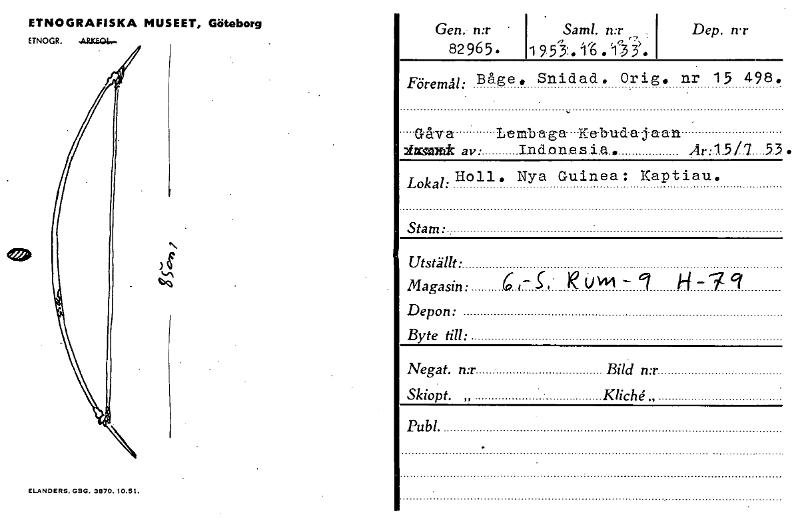 ETNOGRAFISKA MUSEET, Göteborg
ETNOGR. ARKEOL.
ELANDERS, GBG. 3870. 10.51.
Gen. n:r Saml. n:r Dep. n:r
82965. 1953.16.133.
Föremål: Båge. Snidad. Orig. nr 15 498.
Gåva Lembaga Kebudajaan
av: Indonesia. År: 15/7 53.
Lokal: Holl. Nya Guinea: Kaptiau.
Stam:
Utställt:
Magasin: 6.-S. RUM-9 H-79
Depon:
Byte till:
Negat. n:r Bild n:r
Skiopt. „ Kliché „
Publ.